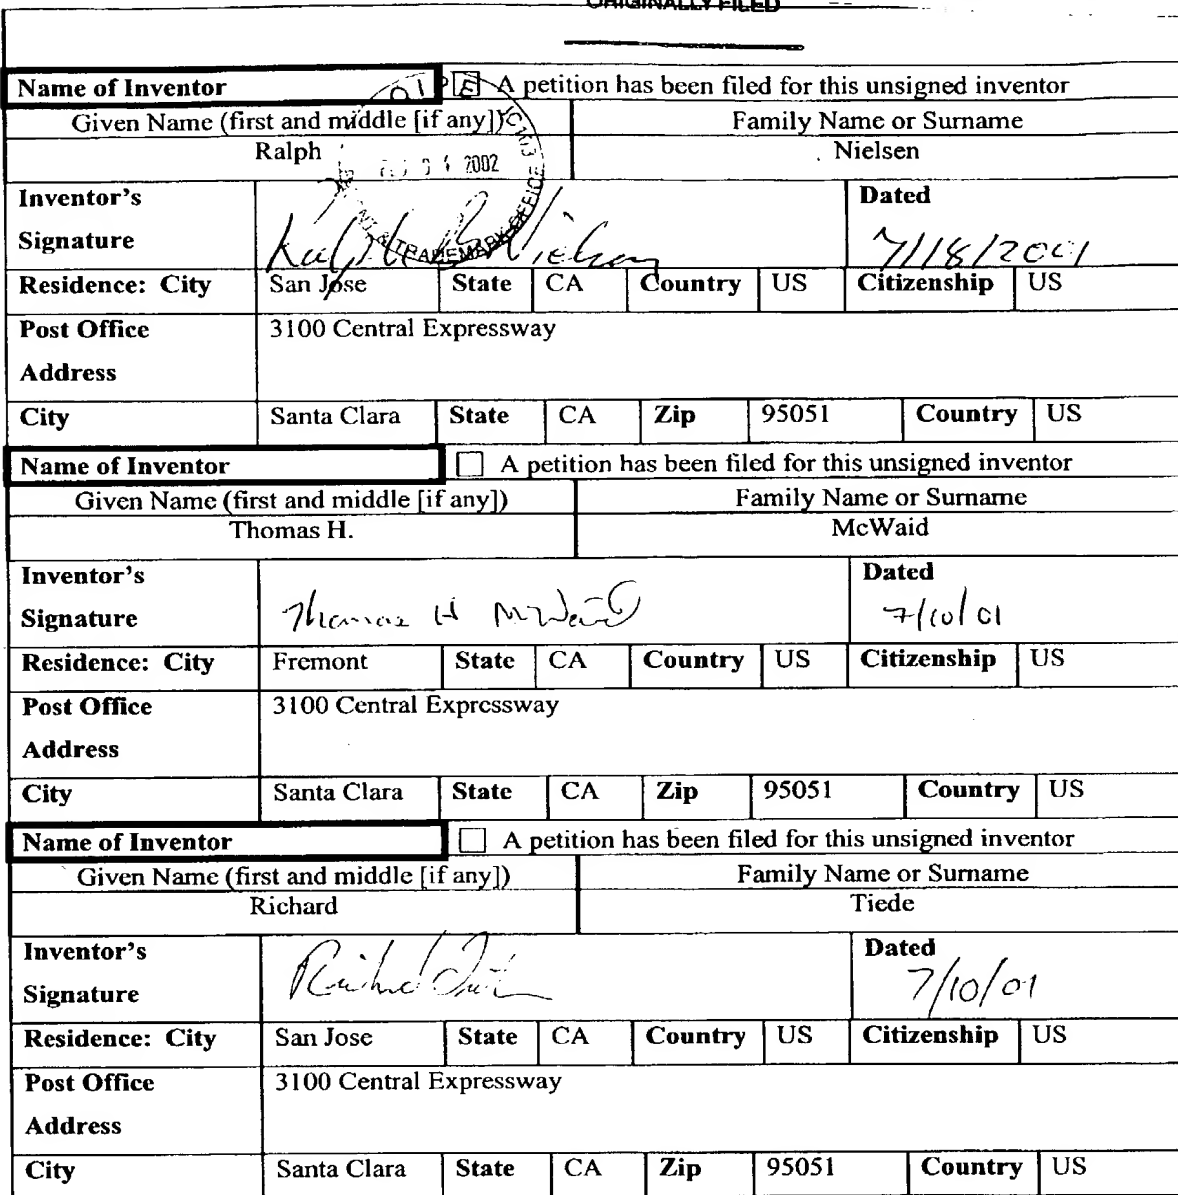 ORIGINALLY FILED
Name of Inventor A petition has been filed for this unsigned inventor
Given Name (first and middle [if any]) Family Name or Surname
Ralph Nielsen
OIPE
2002
& TRADEMARK OFFICE
Inventor's Dated
Signature Ralph B Nielsen 7/18/2001
Residence: City San Jose State CA Country US Citizenship US
Post Office 3100 Central Expressway
Address
City Santa Clara State CA Zip 95051 Country US
Name of Inventor A petition has been filed for this unsigned inventor
Given Name (first and middle [if any]) Family Name or Surname
Thomas H. McWaid
Inventor's Dated
Signature Thomas H McWaid 7/10/01
Residence: City Fremont State CA Country US Citizenship US
Post Office 3100 Central Expressway
Address
City Santa Clara State CA Zip 95051 Country US
Name of Inventor A petition has been filed for this unsigned inventor
Given Name (first and middle [if any]) Family Name or Surname
Richard Tiede
Inventor's Dated
Signature Richard Tiede 7/10/01
Residence: City San Jose State CA Country US Citizenship US
Post Office 3100 Central Expressway
Address
City Santa Clara State CA Zip 95051 Country US